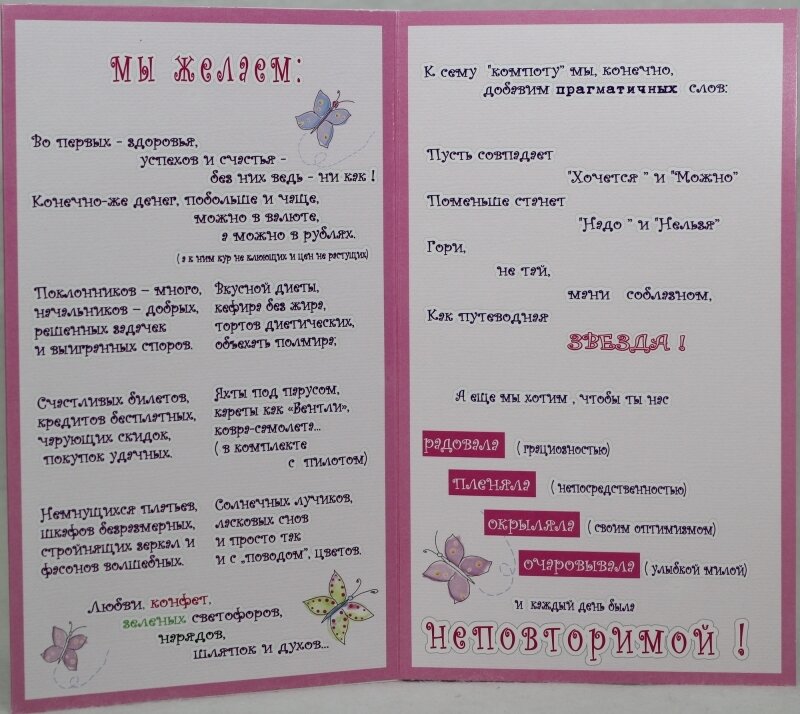 мы желаем:
Во первых - здоровья,
успехов и счастья -
без них ведь - ни как !
Конечно-же денег, побольше и чаще,
можно в валюте,
а можно в рублях.
( а к ним кур не клюющих и цен не растущих)
Поклонников – много,
начальников – добрых,
решенных задачек
и выигранных споров.
Вкусной диеты,
кефира без жира,
тортов диетических,
объехать полмира;
Счастливых билетов,
кредитов бесплатных,
чарующих скидок,
покупок удачных.
Яхты под парусом,
кареты как «Бентли»,
ковра-самолета...
( в комплекте
с пилотом)
Немнущихся платьев,
шкафов безразмерных,
стройнящих зеркал и
фасонов волшебных.
Солнечных лучиков,
ласковых снов
и просто так
и с „поводом”, цветов.
Любви, конфет,
зеленых светофоров,
нарядов,
шляпок и духов...
К сему "компоту" мы, конечно,
добавим прагматичных слов:
Пусть совпадает
"Хочется " и "Можно"
Поменьше станет
"Надо " и "Нельзя"
Гори,
не тай,
мани соблазном,
Как путеводная
ЗВЕЗДА !
А еще мы хотим , чтобы ты нас
радовала ( грациозностью)
пленяла ( непосредственностью)
окрыляла ( своим оптимизмом)
очаровывала ( улыбкой милой)
и каждый день была
НЕПОВТОРИМОЙ !